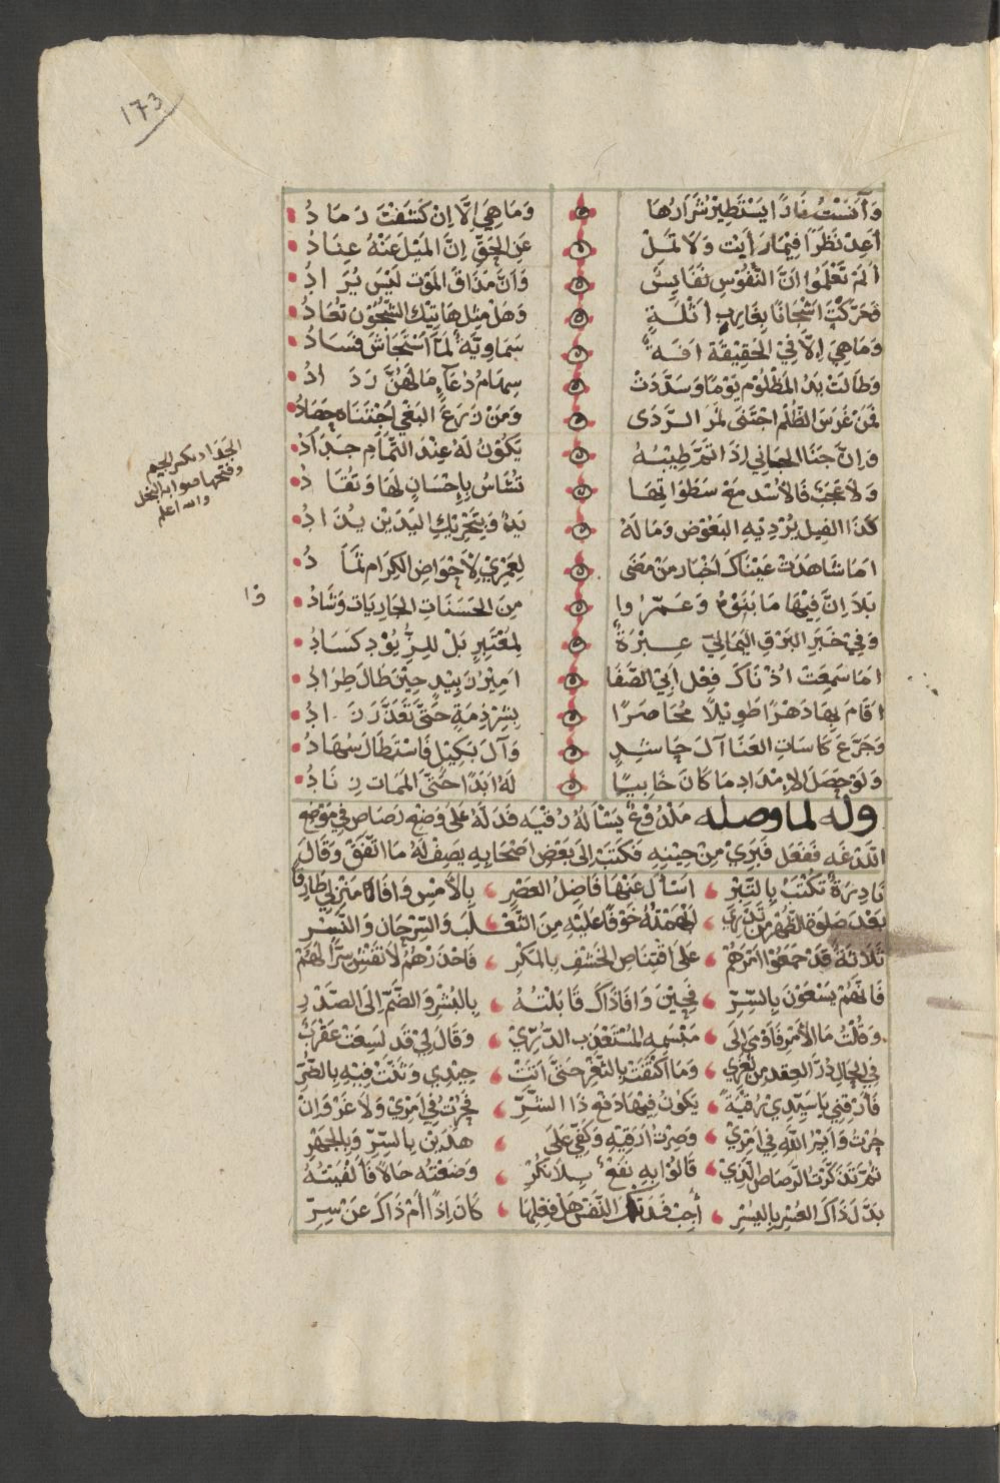 173
وَآنَسْتُ نَارًا يَسْتَطِيْرُ شَرَارُهَا وَمَا هِيَ اِلَّا اِنْ كَشَفْتَ رَمَادُ
أَعِدْ نَظَرًا فِيْمَا رَأَيْتَ وَلَا تَمَلْ عَنِ الحَقِّ اِنَّ المَيْلَ عَنْهُ عِنَادُ
أَلَمْ تَعْلَمُوا اَنَّ النُّفُوْسَ نَفَايِسٌ وَاَنَّ مَذَاقَ المَوْتِ لَيْسَ يُرَادُ
فَحَرَّكْتَ اَشْجَانًا بِغَارِبِ اَثْلَةٍ وَهَلْ مِثْلُ هَاتِيْكَ الشُّجُوْنِ تُعَادُ
وَمَا هِيَ اِلَّا فِي الحَقِيْقَةِ افَةٌ سَمَاوِيَّةٌ لَمَّا اسْتَجَاشَ فَسَادُ
وَطَالَتْ يَدُ المَظْلُوْمِ يَوْمًا وَسَدَّدَتْ سِهَامُ دُعَآءٍ مَا لَهُنَّ رَدَادُ
فَمَنْ غَرَسَ الظُّلْمَ اجْتَنَى ثَمَرَ الرَّدَى وَمَنْ زَرَعَ البَغْيَ اجْتَنَاهُ حِصَادُ
وَاِنَّ جَنَا الجَانِي اِذَا تَمَّ طِيْبُهُ يَكُوْنُ لَهُ عِنْدَ التَّمَامِ جَدَادُ
وَلَا عَجَبٌ فَالأُسْدُ مَعْ سَطَوَاتِهَا تُسَاسُ بِاِحْسَانٍ لَهَا وَتُقَادُ
كَذَا الفِيْلُ يُرْدِيْهِ البَعُوْضُ وَمَا لَهُ يَدٌ وَبِتَحْرِيْكِ اليَدَيْنِ يُذَادُ
اَمَا شَاهَدَتْ عَيْنَاكَ اَخْبَارَ مَنْ مَضَى لِعَمْرِيْ لِأَحْوَاضِ الكِرَامِ ثَمَادُ
بَلَا اِنَّ فِيْهَا مَا بَنَوْهُ وَعَمَّرُوا مِنَ الحَسَنَاتِ الجَارِيَاتِ وَشَادُ
وَفِيْ خَبَرِ البَرْقِ اليَمَانِيِّ عِبْرَةٌ لِمُعْتَبِرٍ بَلْ لِلرُّيُوْدِ كَسَادُ
اَمَا سَمِعَتْ اُذْنَاكَ فِعْلَ اَبِي الصَّفَا اَمِيْرُ زَبِيْدٍ حِيْنَ طَالَ طِرَادُ
اَقَامَ بِهَا دَهْرًا طَوِيْلًا مُحَاصَرًا بِشِرْذِمَةٍ حَتَّى تَعَذَّرَ زَادُ
وَجَرَّعَ كَاسَاتِ العَنَا آلَ حَاشِدٍ وَآلَ بَكِيْلٍ فَاسْتَطَالَ سُهَادُ
وَلَوْ حَصَلَ الاِمْدَادُ مَا كَانَ خَايِبًا لَهُ اَبَدًا حَتَّى المَمَاتِ زِنَادُ
الجَدَاد بكسر الجيم
وفتحها صرام النخل
والله اعلم
وا
وله لما وصله مَلْدُوْغٌ يَسْأَلُهُ رُقْيَه فَدَلَّهُ عَلَى وَضْعِ رَصَاصٍ فِي مَوْضِعِ
اللَّدْغَه فَفَعَلَ فَبَرِئَ مِنْ حِيْنِهِ فَكَتَبَ اِلَى بَعْضِ اَصْحَابِهِ يَصِفُ لَهُ مَا اتَّفَقَ وَقَالَ
نَادِرَةٌ تُكْتَبُ بِالتِّبْرِ اَسْأَلُ عَنْهَا فَاضِلَ العَصْرِ بِالأَمْسِ وَافَا لِمَنْزِلِيْ طَارِقًا
بَعْدَ صَلَوةِ الظُّهْرِ مَنْ تَدْرِيْ اَلْهَمْتُهُ خَوْفًا عَلَيْهِ مِنَ الثَّعْلَبِ وَالسِّرْحَانِ وَالنَّسْرِ
ثَلَاثَةٌ قَدْ جَمَعُوْا اَمْرَهُمْ عَلَى اقْتِنَاصِ الخَشْفِ بِالمَكْرِ فَاحْذَرْهُمُ لَا تَفْشِ سِرًّا لَهُمْ
فَانَّهُمْ يَسْعَوْنَ بِالسِّرِّ فَحِيْنَ وَافَا ذَاكَ قَابَلْتُهُ بِالبُشْرِ وَالضَّمِّ اِلَى الصَّدْرِ
وَقُلْتُ مَا الأَمْرُ فَاَوْمَى اِلَى مَبْسَمِهِ المُسْتَعْذَبِ الدُّرِّيْ وَقَالَ لِيْ قَدْ لَسَعَتْ عَقْرَبٌ
فِي الحَالِ دُرَّ العِقْدِ مِنْ ثَغْرِيْ وَمَا اكْتَفَتْ بِالثَّغْرِ حَتَّى اَتَتْ جِيْدِيْ وَثَنَّتْ فِيْهِ بِالضُّرِّ
فَأَرْقِنِي يَا سَيِّدِيْ رُقْيَةً يَكُوْنُ فِيْهَا دَفْعُ ذَا الشَّرِّ فَحِرْتُ فِي اَمْرِيْ وَلَا غَرْوَ اِنْ
حِرْتُ وَاَيْمُ اللهِ فِي اَمْرِيْ وَصِرْتُ اَرْقِيْهِ وَكَفِّيْ عَلَى هٰذَيْنِ بِالسِّرِّ وَبِالجَهْرِ
ثُمَّ تَذَكَّرْتُ الرَّصَاصَ الَّذِيْ قَالُوْا بِهِ نَفْعٌ بِلَا نُكْرِ وَضَعْتُهُ حَالًا فَأَلْفَيْتُهُ
بَدَّلَ ذَاكَ العُسْرَ بِاليُسْرِ أَجِبْ فَدَتْكَ النَّفْسُ هَلْ فِعْلُهَا كَانَ اِذًا أَمْ ذَاكَ عَنْ سِرِّ